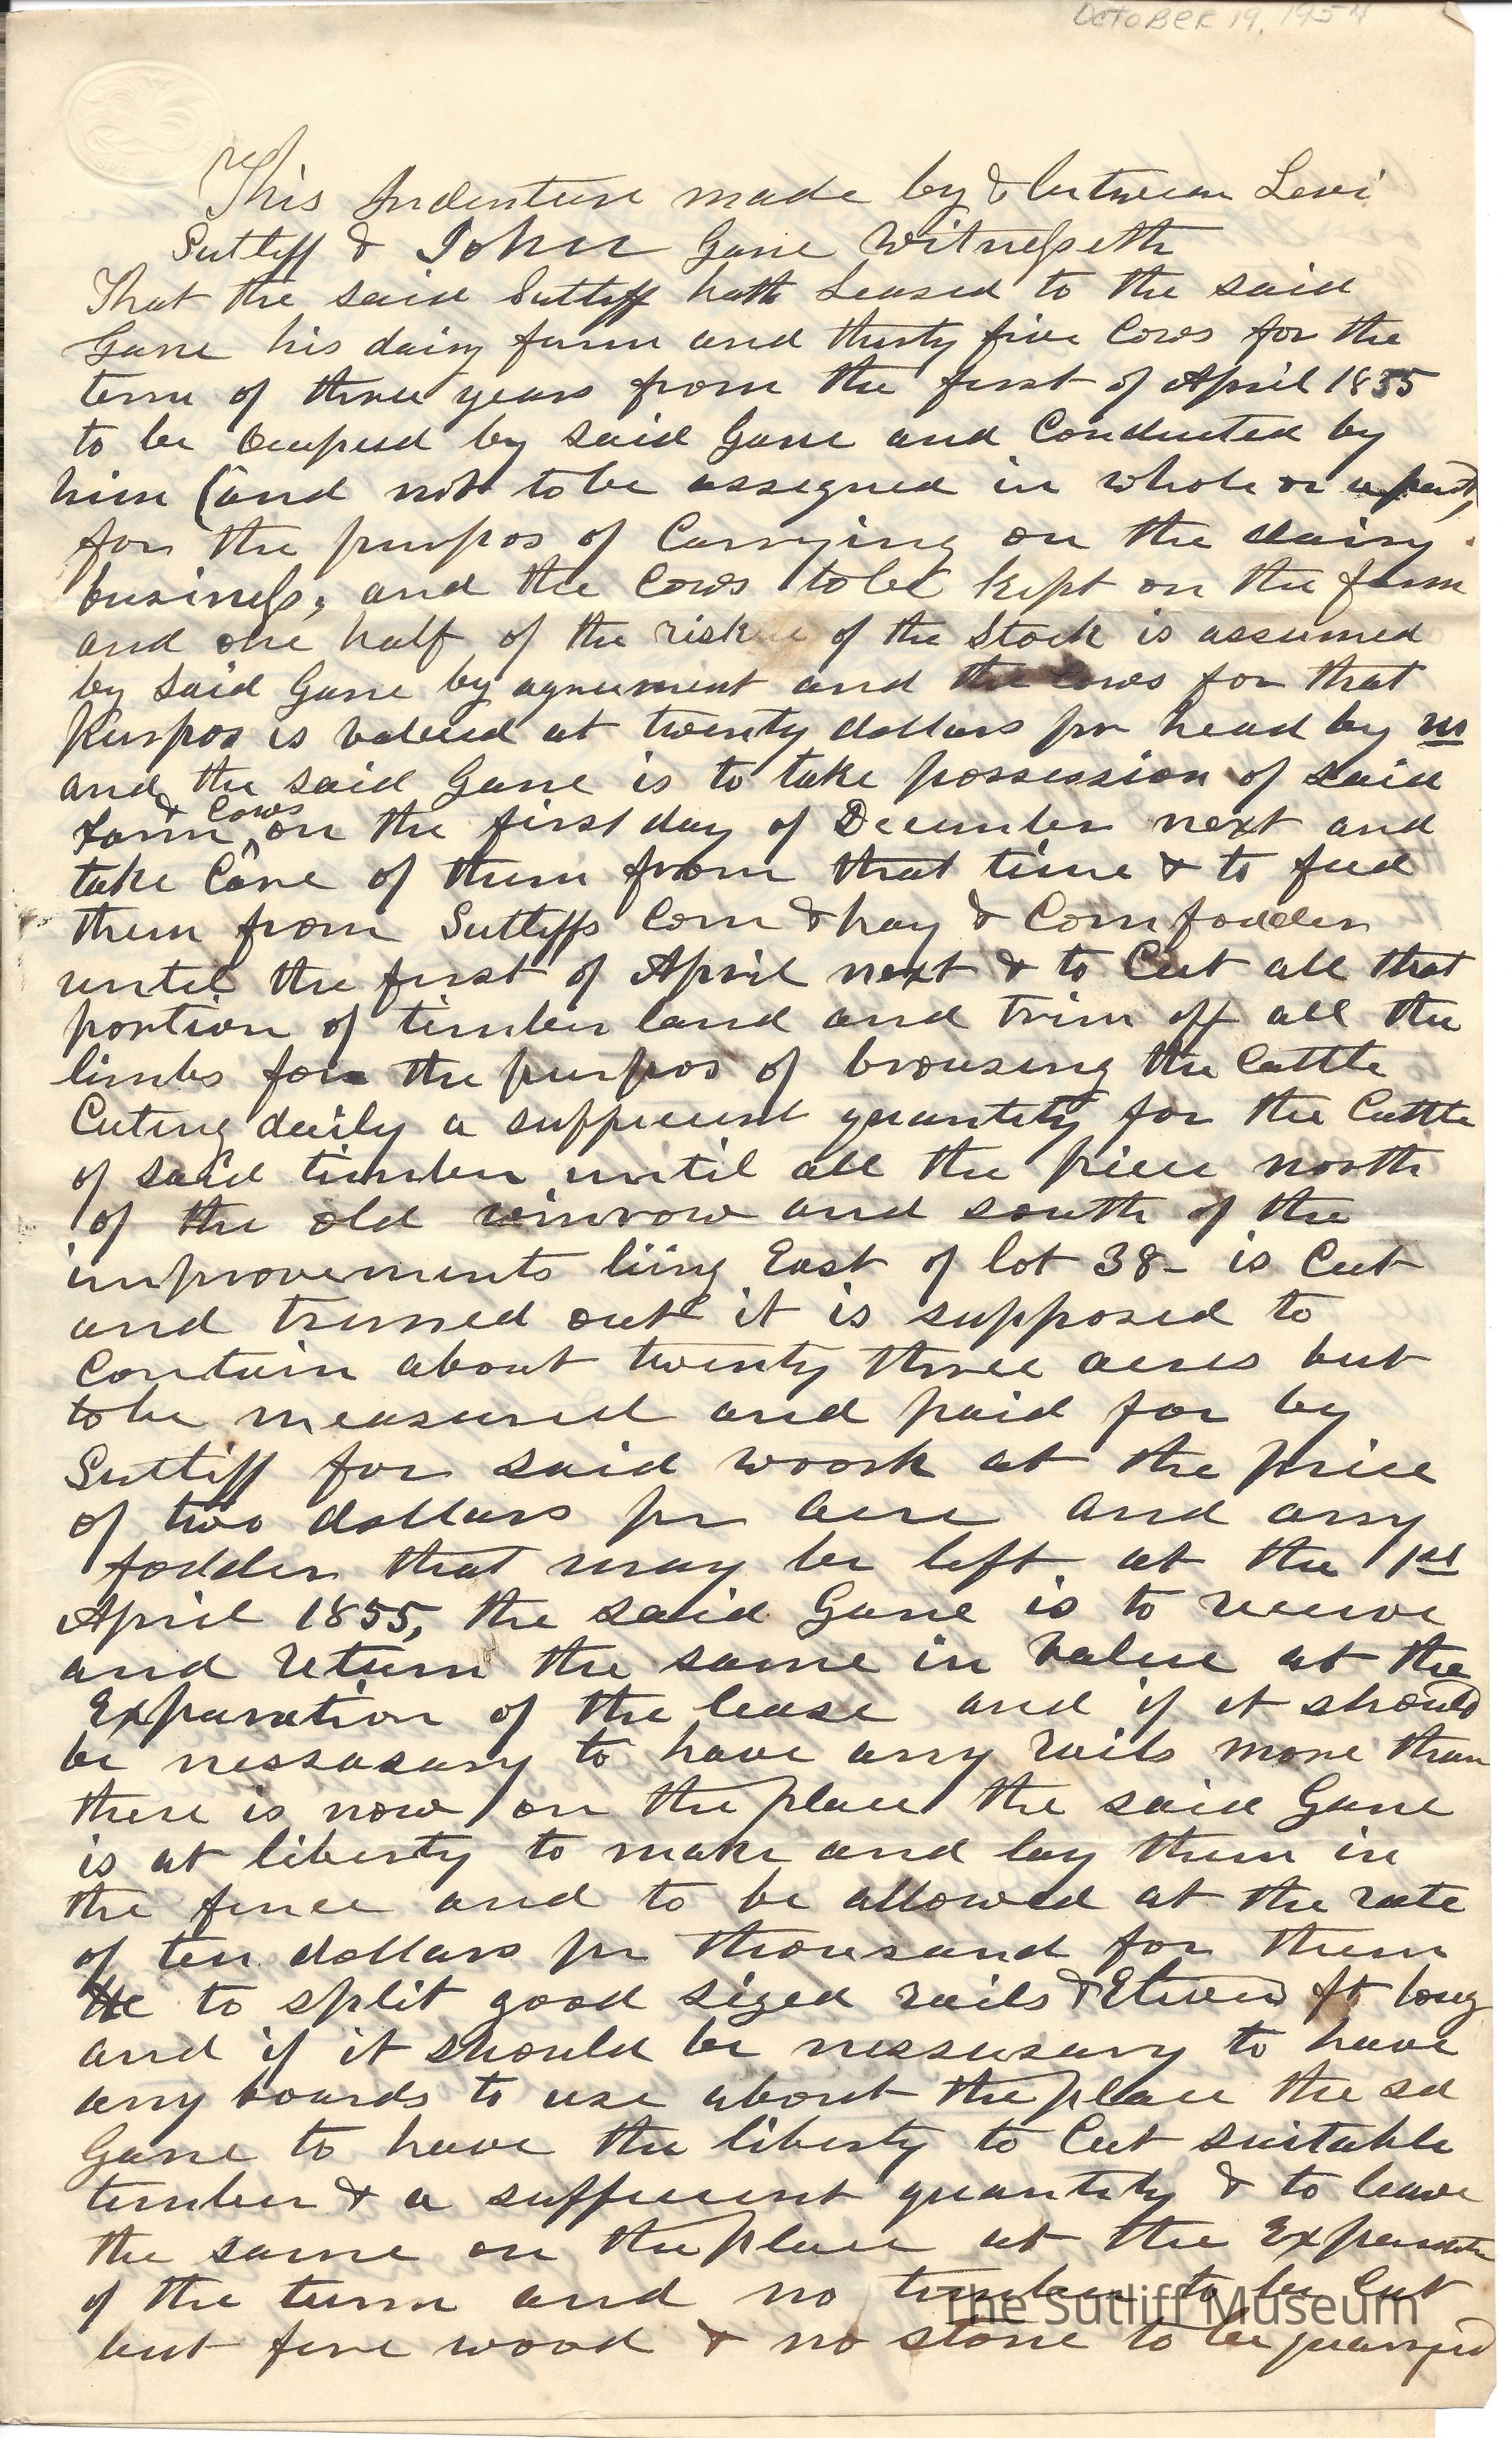 OCTOBER 19, 1954
This Indenture made by & between Levi
Sutliff & John Gane Witnesseth
That the said Sutliff hath Leased to the said
Gane his dairy farm and thirty five Cows for the
term of three years from the first of April 1855
to be Occupied by said Gane and Conducted by
him (and not to be assigned in whole or a part,
for the purpos of Carrying on the dairy
business, and the Cows to be kept on the farm
and one half of the risk of the Stock is assumed
by Said Gane by agreement and the Cows for that
Purpos is valued at twenty dollars pr head by us
and the said Gane is to take possession of said
& Cows
Farm on the first day of December next and
take Care of them from that time & to feed
them from Sutliffs Corn & hay & Corn fodder
until the first of April next & to Cut all that
portion of timber land and trim off all the
limbs for the purpos of brousing the Cattle
Cuting daily a sufficient quantity for the Cattle
of said timber until all the piece north
of the old winrow and south of the
improvements liing East of lot 38- is Cut
and trimed out it is supposed to
Contain about twenty three acres but
to be measured and paid for by
Sutliff for said woork at the price
of two dollars pr acre and any
fodder that may be left at the 1st
April 1855, the said Gane is to receive
and return the same in value at the
Expiration of the lease and if it should
be nessasary to have any rails more than
there is now on the place the said Gane
is at liberty to make and lay them in
the fence and to be allowed at the rate
of ten dollars pr thousand for them
He to split good sized rails & Eleven ft long
and if it should be nessasary to have
any boards to use about the place the sd
Gane to have the liberty to Cut suitable
timber & a sufficient quantity & to leave
the same on the place at the Expiration
of the term and no timber to be Cut
but fire wood & no stone to be quarried
The Sutliff Museum